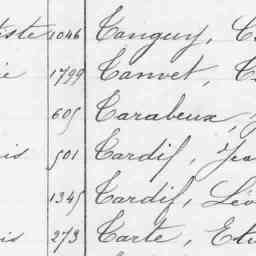 iste 1046 Tanguy, C
ie 1799 Tanvet, C
605 Tarabeux, J
is 501 Tardif, Jea
1345 Tardif, Léo
is 273 Tarte, Etie